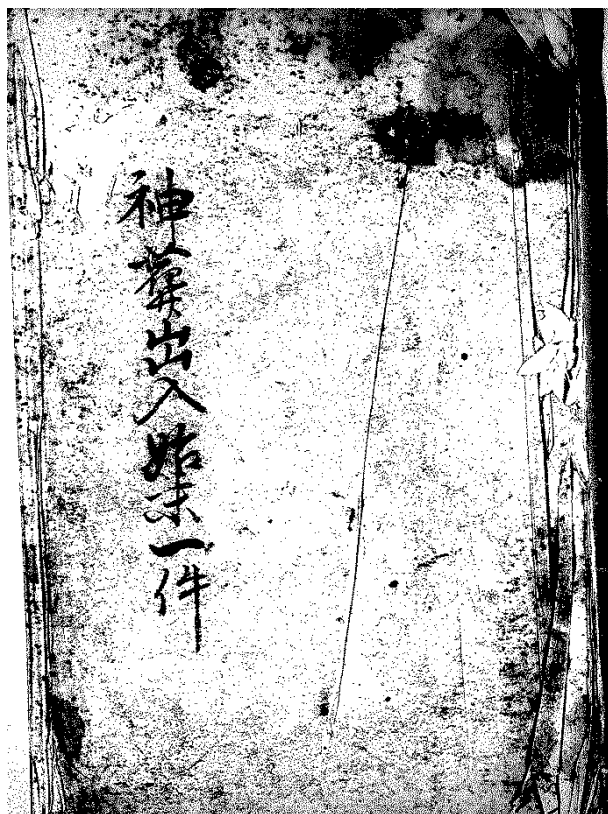 神葬出入始末一件